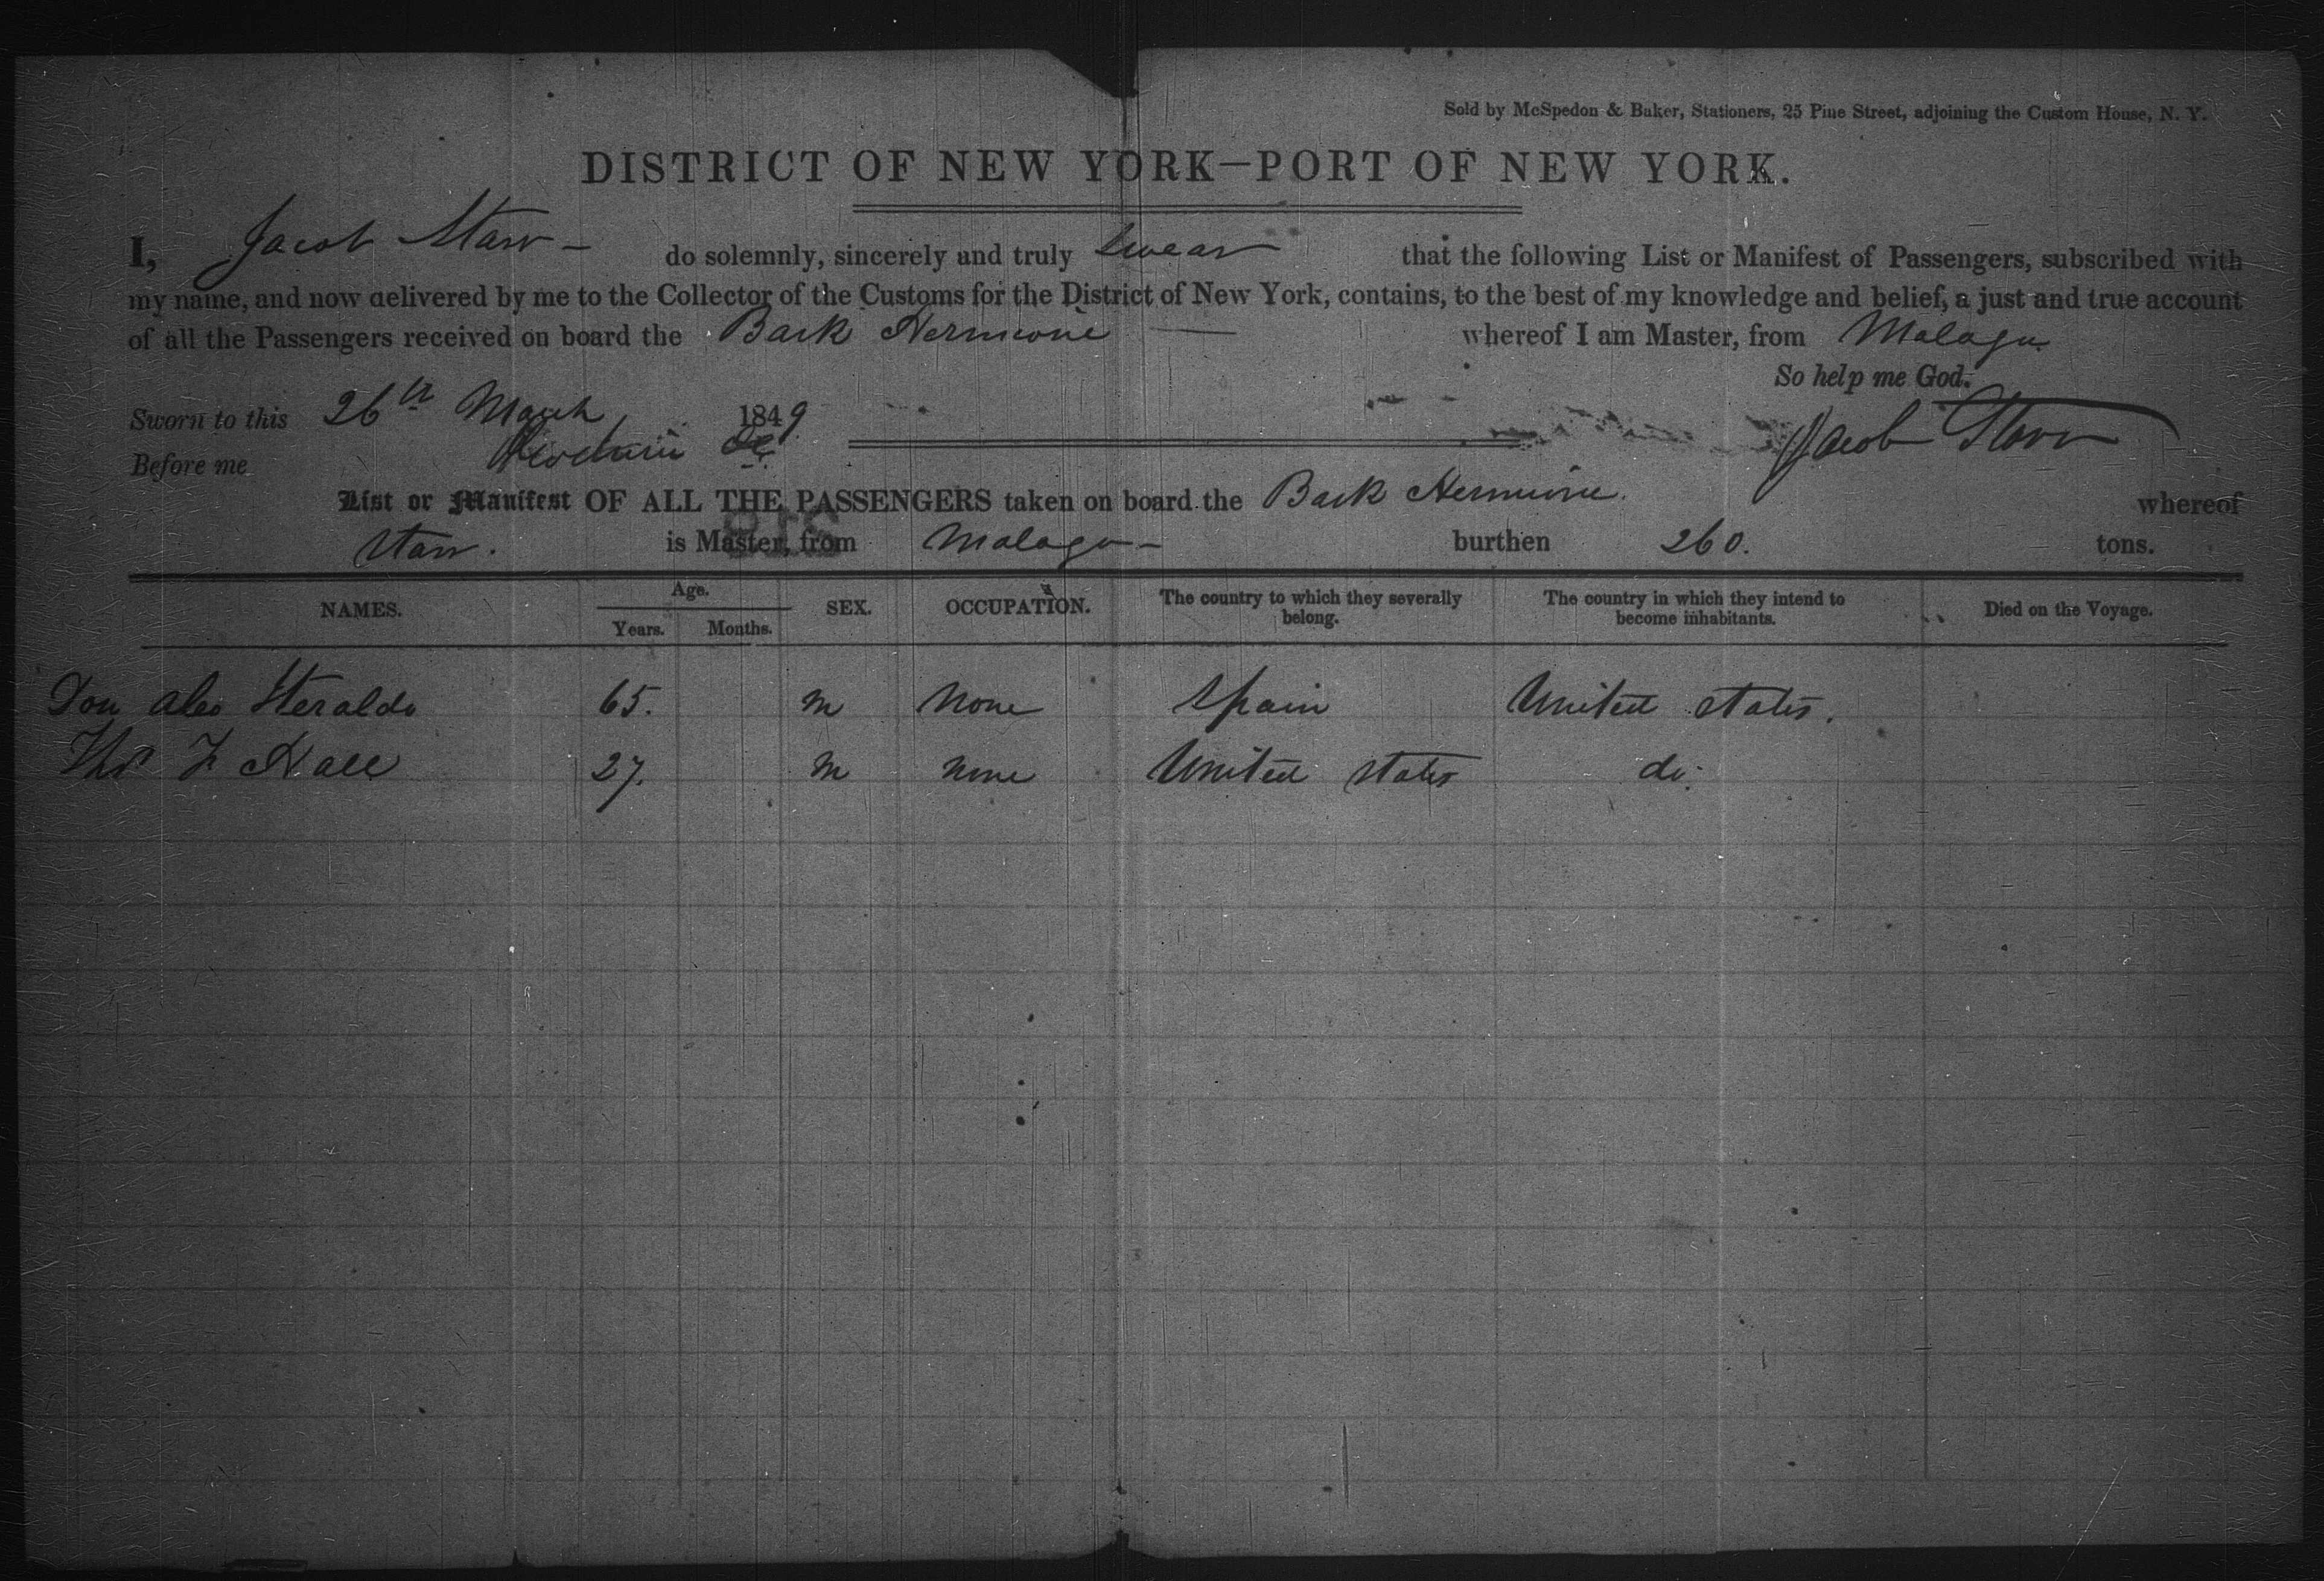 Sold by McSpedon & Baker, Stationers, 25 Pine Street, adjoining the Custom House, N. Y.
DISTRICT OF NEW YORK—PORT OF NEW YORK.
I, Jacob Starr — do solemnly, sincerely and truly swear that the following List or Manifest of Passengers, subscribed with
my name, and now delivered by me to the Collector of the Customs for the District of New York, contains, to the best of my knowledge and belief, a just and true account
of all the Passengers received on board the Bark Hermione — whereof I am Master, from Malaga
So help me God.
Sworn to this 26th March 1849
Jacob Starr
Before me
List or Manifest OF ALL THE PASSENGERS taken on board the Bark Hermione. whereof
Starr. is Master, from Malaga — burthen 260. tons.
NAMES. Age. Years. Months. SEX. OCCUPATION. The country to which they severally belong. The country in which they intend to become inhabitants. Died on the Voyage.
Don 65. m None Spain United States.
Thos F Hall 27. m none United States do.